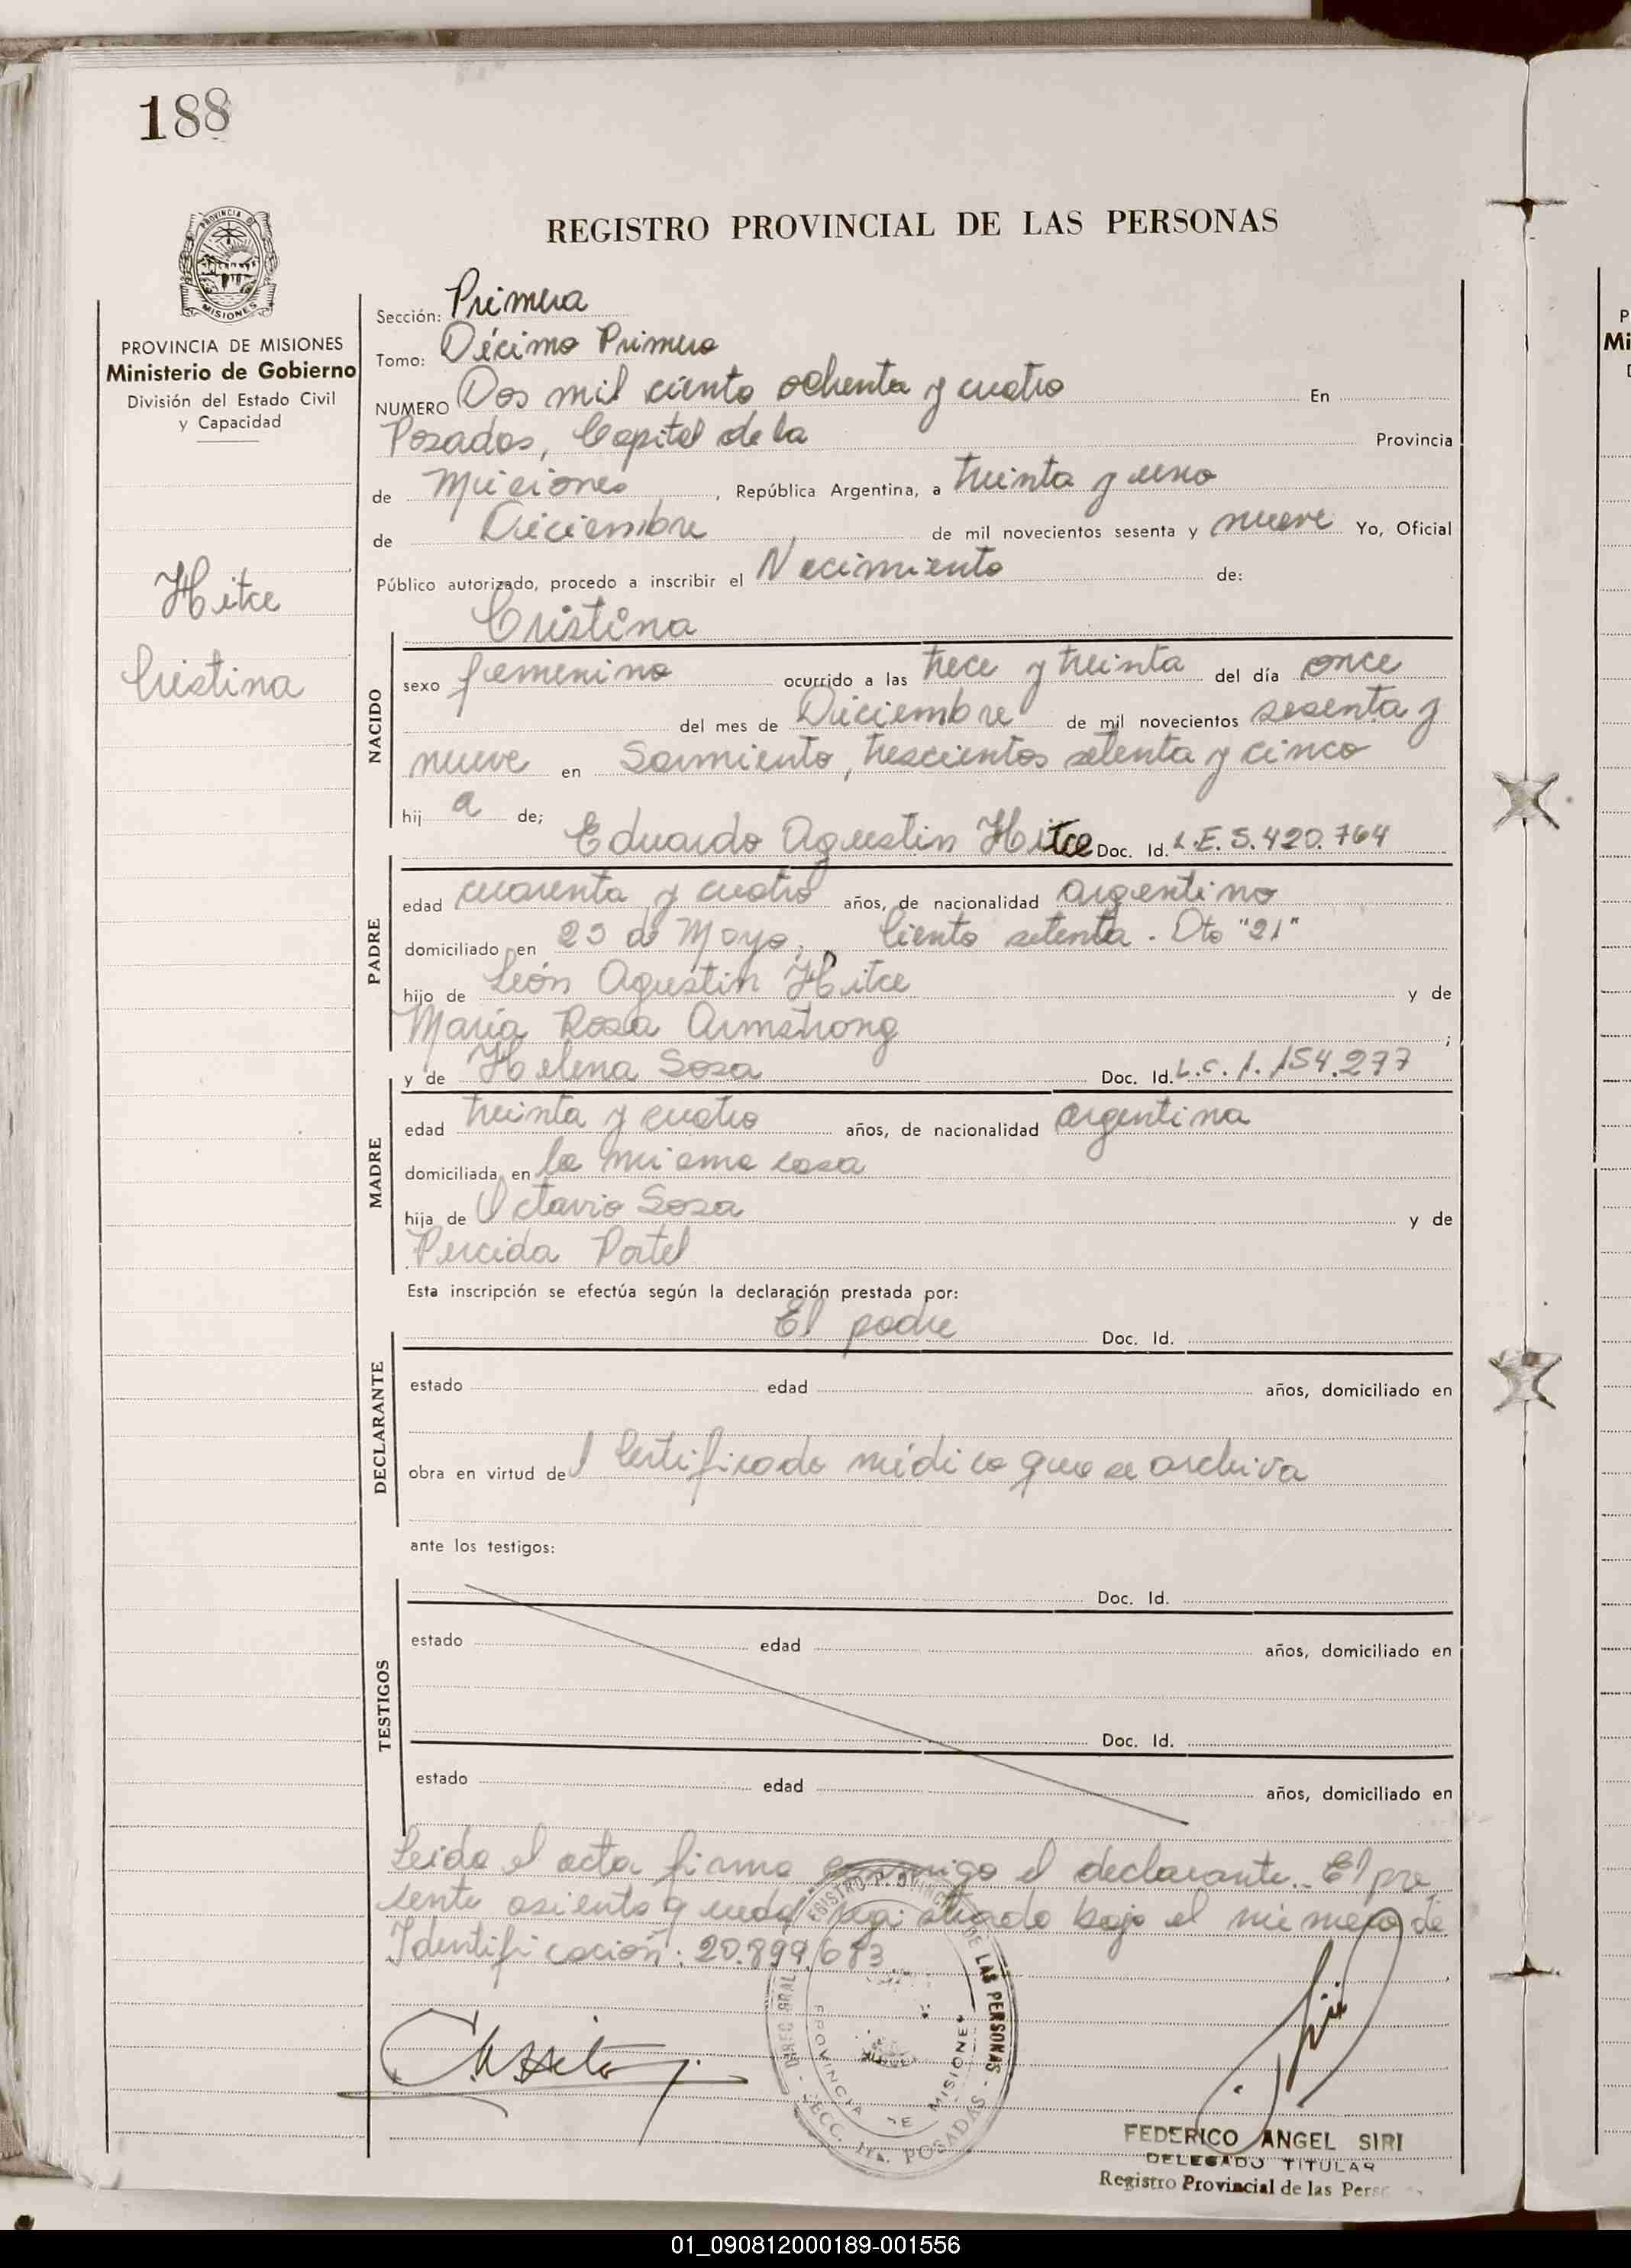 188
REGISTRO PROVINCIAL DE LAS PERSONAS
PROVINCIA DE
MISIONES
PROVINCIA DE MISIONES
Ministerio de Gobierno
División del Estado Civil
y Capacidad
Hitce
Cristina
Sección: Primera
Tomo: Décimo Primero
NUMERO Dos mil ciento ochenta y cuatro En
Posadas, Capital de la Provincia
de Misiones, República Argentina, a treinta y uno
de Diciembre de mil novecientos sesenta y nueve Yo, Oficial
Público autorizado, procedo a inscribir el Nacimiento de:
Cristina
NACIDO
sexo femenino ocurrido a las trece y treinta del día once
del mes de Diciembre de mil novecientos sesenta y
nueve en Sarmiento, trescientos setenta y cinco
hija de; Eduardo Agustin Hitce Doc. Id. L.E. 5.420.764
PADRE
edad cuarenta y cuatro años, de nacionalidad argentino
domiciliado en 25 de Mayo, Ciento setenta. Dto "21"
hijo de León Agustin Hitce y de
María Rosa Armstrong ;
y de Helena Sosa Doc. Id. L.C. 1.154.277
MADRE
edad treinta y cuatro años, de nacionalidad argentina
domiciliada en la misma casa
hija de Octavio Sosa y de
Percida Portel
Esta inscripción se efectúa según la declaración prestada por:
El padre Doc. Id.
DECLARANTE
estado edad años, domiciliado en
obra en virtud del Certificado médico que se archiva
ante los testigos:
Doc. Id.
TESTIGOS
estado edad años, domiciliado en
Doc. Id.
estado edad años, domiciliado en
Leida el acta firma conmigo el declarante.- El pre
sente asiento queda registrado bajo el número de
Identificación: 20.899.683
REGISTRO PROVINCIAL DE LAS PERSONAS
DIREC. GRAL.
PROVINCIA DE MISIONES
SECC. 1ra. POSADAS
FEDERICO ANGEL SIRI
DELEGADO TITULAR
Registro Provincial de las Pers
01_090812000189-001556